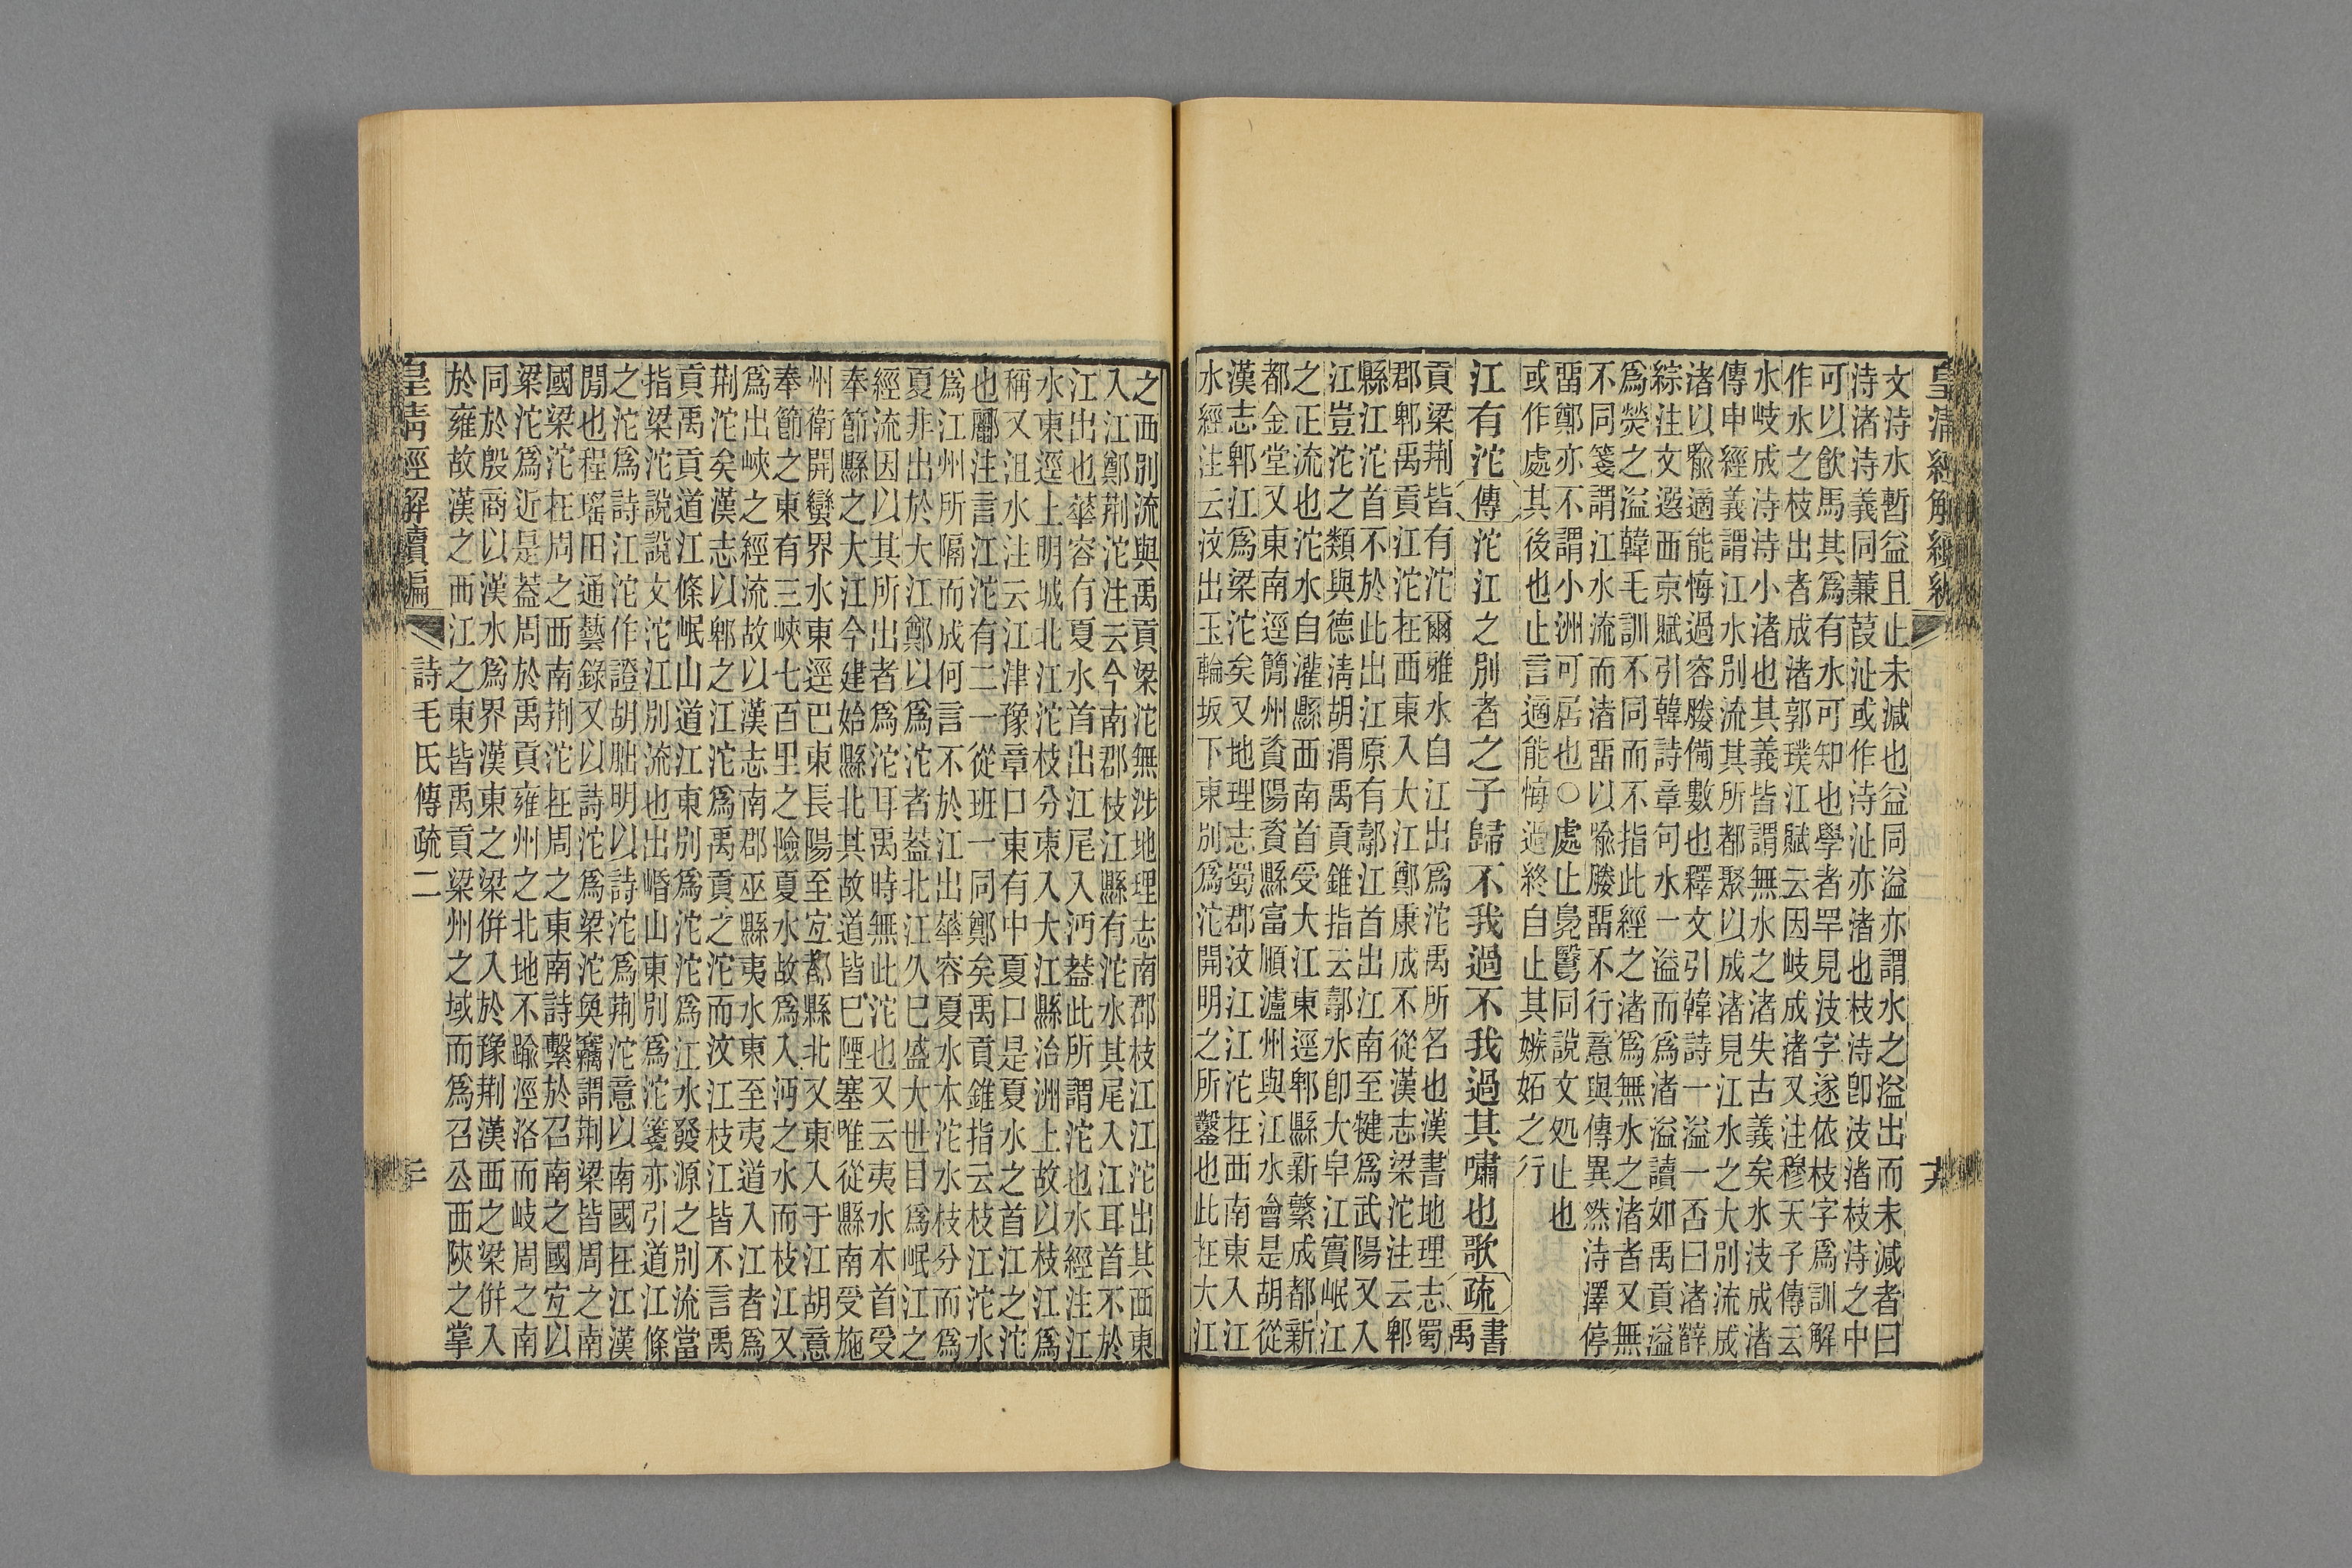 文洔水暫益且止未減也益同溢亦謂水之溢出而未減者曰
洔渚洔義同蒹葭沚或作洔沚亦渚也枝洔卽汥渚枝洔之中
可以飮馬其爲有水可知也學者罕見汥字遂依枝字爲訓解
作水之枝出者成渚郭璞江賦云因岐成渚又注穆天子傳云
水岐成洔洔小渚也其義皆謂無水之渚失古義矣水汥成渚
傳申經義謂江水別流其所都聚以成渚見江水之大別流成
渚以喩適能悔過容媵備數也釋文引韓詩一溢一否曰渚薛
綜注文選西京賦引韓詩章句水一溢而爲渚溢讀如禹貢溢
爲熒之溢韓毛訓不同而不指此經之渚爲無水之渚者又無
不同箋謂江水流而渚畱以喩媵畱不行意與傳異然洔澤停
畱鄭亦不謂小洲可居也○處止鳧鷖同說文処止也
或作處其後也止言適能悔過終自止其嫉妬之行
江有沱傳沱江之別者之子歸不我過不我過其嘯也歌疏書禹
貢梁荆皆有沱爾雅水自江出爲沱禹所名也漢書地理志蜀
郡郫禹貢江沱在西東入大江鄭康成不從漢志梁沱注云郫
縣江沱首不於此出江原有鄩江首出江南至犍爲武陽又入
江豈沱之類與德淸胡渭禹貢錐指云鄩水卽大皁江實岷江
之正流也沱水自灌縣西南首受大江東逕郫縣新繁成都新
都金堂又東南逕簡州資陽資縣富順瀘州與江水會是胡從
漢志郫江爲梁沱矣又地理志蜀郡汶江江沱在西南東入江
水經注云汶出玉輪坂下東別爲沱開明之所鑿也此在大江
皇淸經解續編
之西別流與禹貢梁沱無涉地理志南郡枝江江沱出其西東
入江鄭荆沱注云今南郡枝江縣有沱水其尾入江耳首不於
江出也華容有夏水首出江尾入沔葢此所謂沱也水經注江
水東逕上明城北江沱枝分東入大江縣治洲上故以枝江爲
稱又沮水注云江津豫章口東有中夏口是夏水之首江之沱
也酈注言江沱有二一從班一同鄭矣禹貢錐指云枝江沱水
爲江州所隔而成何言不於江出華容夏水本沱水枝分而爲
夏非出於大江鄭以爲沱者葢北江久已盛大世目爲岷江之
經流因以其所出者爲沱耳禹時無此沱也又云夷水本首受
奉節縣之大江今建始縣北其故道皆已陻塞唯從縣南受施
州衛開蠻界水東逕巴東長陽至宜都縣北又東入于江胡意
奉節之東有三峽七百里之險夏水故爲入沔之水而枝江又
爲出峽之經流故以漢志南郡巫縣夷水東至夷道入江者爲
荆沱矣漢志以郫之江沱爲禹貢之沱而汶江枝江皆不言禹
貢禹貢道江條岷山道江東別爲沱沱爲江水發源之別流當
指梁沱說說文沱江別流也出㟭山東別爲沱箋亦引道江條
之沱爲詩江沱作證胡朏明以詩沱爲荆沱意以南國在江漢
閒也程瑤田通藝錄又以詩沱爲梁沱奐竊謂荆梁皆周之南
國梁沱在周之西南荆沱在周之東南詩繫於召南之國宜以
梁沱爲近是葢周於禹貢雍州之北地不踰涇洛而岐周之南
同於殷商以漢水爲界漢東之梁倂入於豫荆漢西之梁倂入
於雍故漢之西江之東皆禹貢梁州之域而爲召公西陝之掌
皇淸經解續編　詩毛氏傳疏二